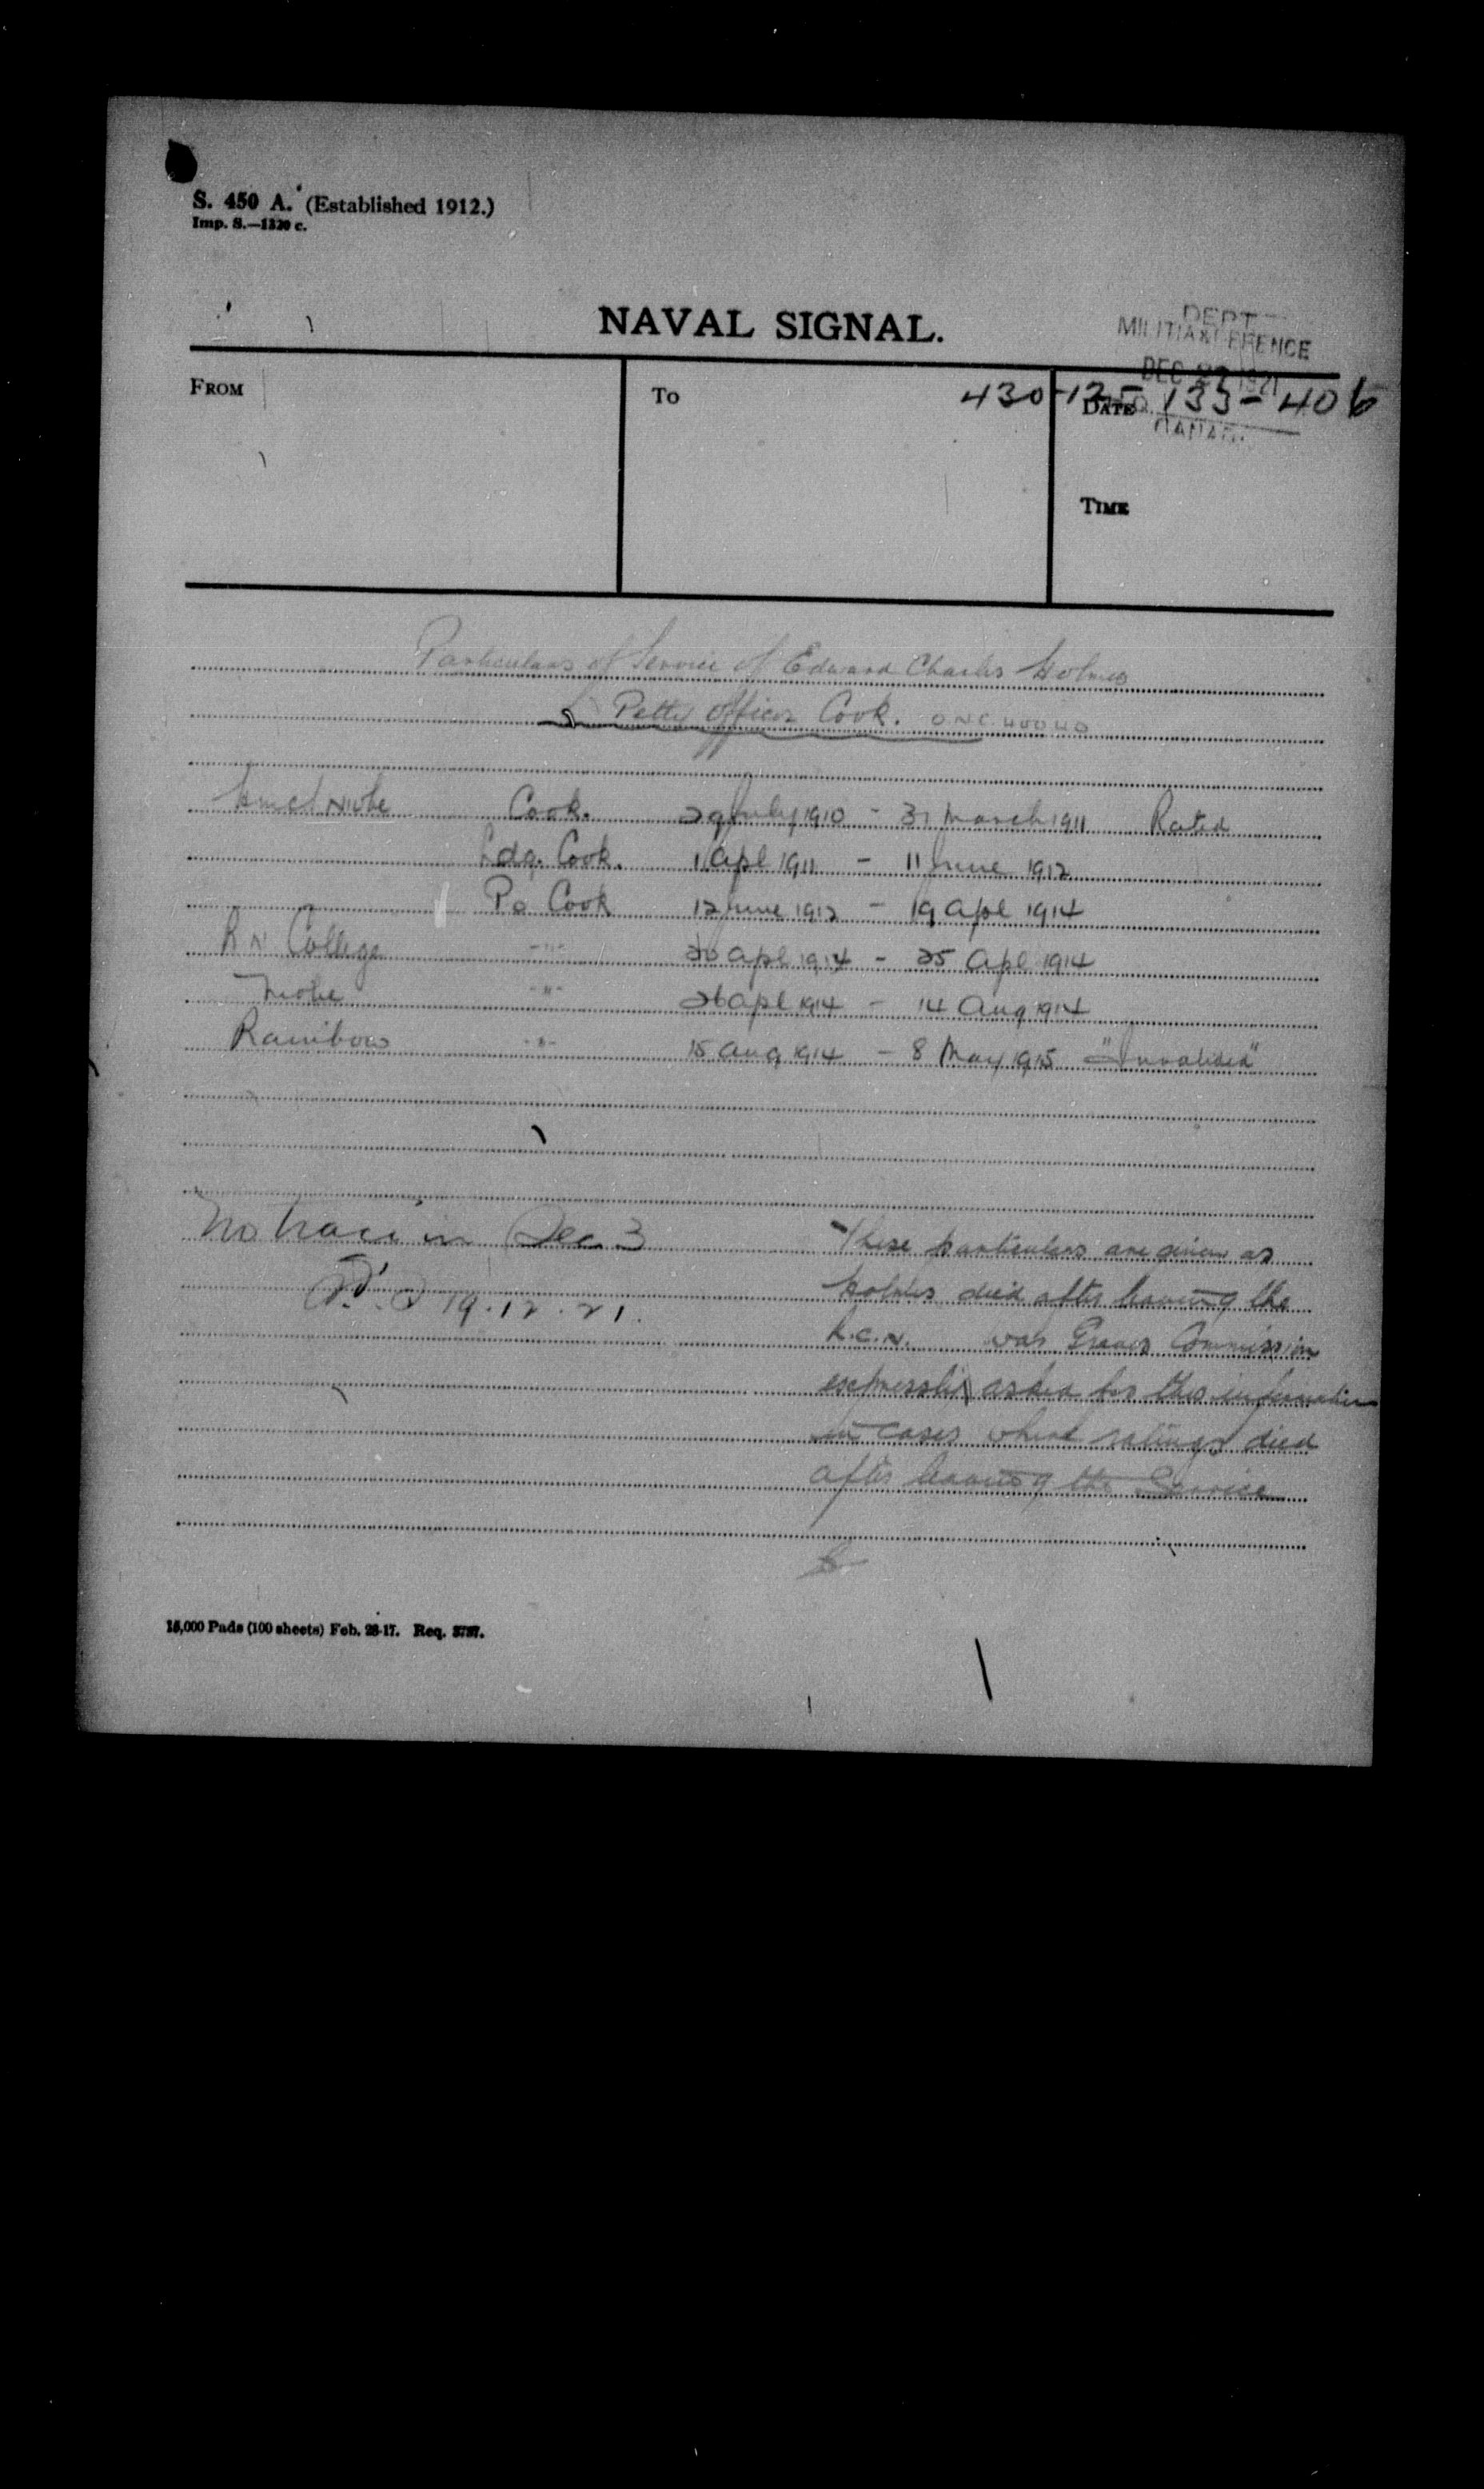 S. 450 A. (Established 1912.)
Imp. S.—1320 c.
NAVAL SIGNAL.
DEPT
MILITIA & DEFENCE
DEC 1921
CANADA
FROM
To
430-12
DATE
135-406
TIME
Particulars of Service of Edward Charles Holmes
Petty Officer Cook. O.N.C. 40040
HMCS Niobe Cook. 29 July 1910 - 31 March 1911 Rated
Ldg. Cook. 1 Apl 1911 - 11 June 1912
Po Cook 12 June 1912 - 19 Apl 1914
R N College -"- 20 Apl 1914 - 25 Apl 1914
Niobe -"- 26 Apl 1914 - 14 Aug 1914
Rainbow -"- 15 Aug 1914 - 8 May 1915 "Invalided"
No trace in Sec 3
19.12.21.
These particulars are given as
Holmes died after leaving the
R.C.N. War Graves Commission
expressly asked for this information
in cases where ratings died
after leaving the Service
15,000 Pads (100 sheets) Feb. 28-17. Req. 3787.